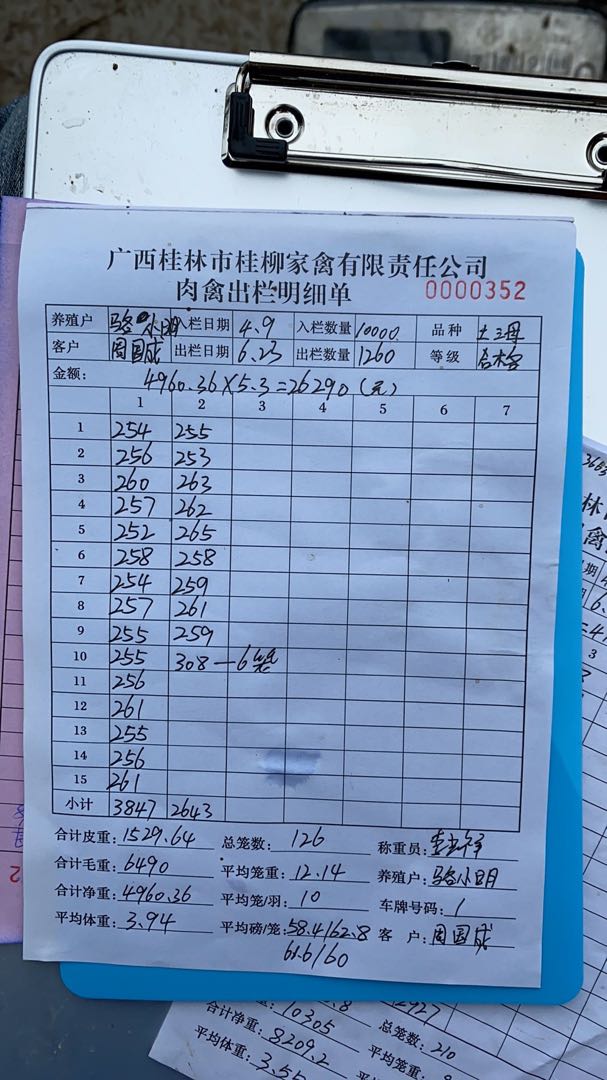 广西桂林市桂柳家禽有限责任公司
肉禽出栏明细单 0000352
养殖户 骆小明 入栏日期 4.9 入栏数量 10000 品种 土三母
客户 周国成 出栏日期 6.23 出栏数量 1260 等级 合格
金额: 4960.36×5.3=26290(元)
1 2 3 4 5 6 7
1 254 255
2 256 253
3 260 263
4 257 262
5 252 265
6 258 258
7 254 259
8 257 261
9 255 259
10 255 308—6笼
11 256
12 261
13 255
14 256
15 261
小计 3847 2643
合计皮重: 1529.64 总笼数: 126 称重员:
合计毛重: 6490 平均笼重: 12.14 养殖户: 骆小明
合计净重: 4960.36 平均笼/羽: 10 车牌号码: 1
平均体重: 3.94 平均磅/笼: 58.4/62.8 客户: 周国成
61.6/60
10305 总笼数: 210
合计净重: 8209.2 平均笼重:
平均体重: 3.55